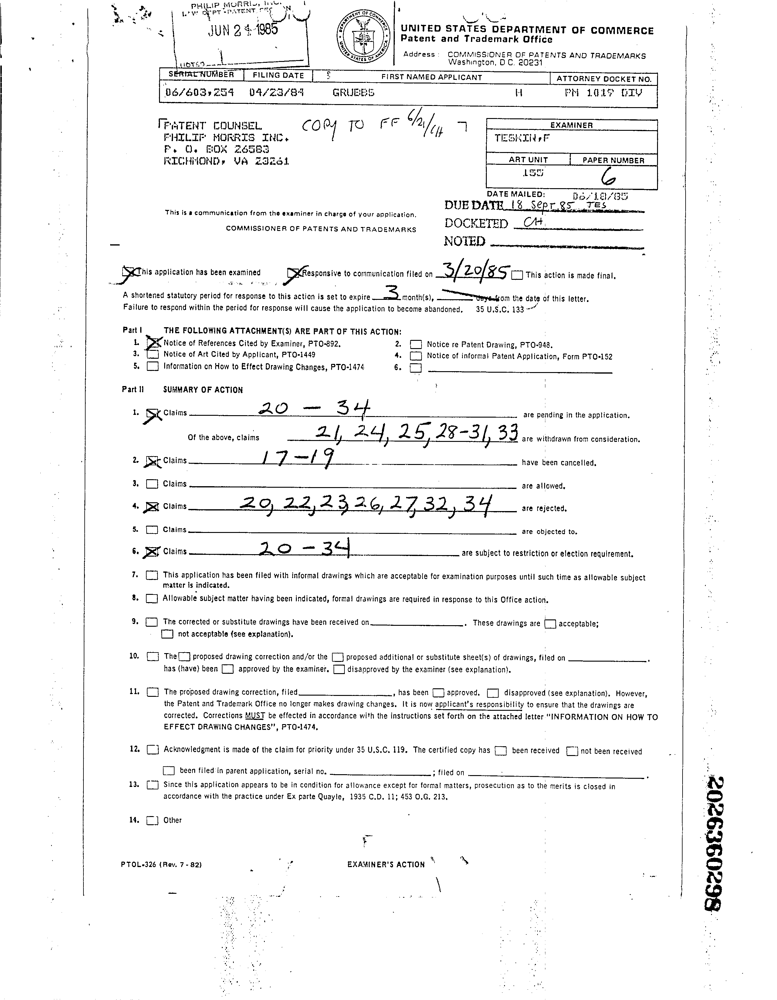 PHILIP MORRIS, INC.
JUN 24 1985
UNITED STATES DEPARTMENT OF COMMERCE
Patent and Trademark Office
Address : COMMISSIONER OF PATENTS AND TRADEMARKS
Washington, D.C. 20231
SERIAL NUMBER FILING DATE FIRST NAMED APPLICANT ATTORNEY DOCKET NO.
06/603,254 04/23/84 GRUBBS H PM 1017 DIV
PATENT COUNSEL
PHILIP MORRIS INC.
P. O. BOX 26583
RICHMOND, VA 23261
COPY TO FF 6/21/CH
EXAMINER
TESKIN,F
ART UNIT PAPER NUMBER
155 6
DATE MAILED: 06/18/85
DUE DATE 18 Sept. 85 TES
DOCKETED CH.
NOTED
This is a communication from the examiner in charge of your application.
COMMISSIONER OF PATENTS AND TRADEMARKS
This application has been examined Responsive to communication filed on 3/20/85 This action is made final.
A shortened statutory period for response to this action is set to expire 3 month(s), days from the date of this letter.
Failure to respond within the period for response will cause the application to become abandoned. 35 U.S.C. 133
Part I THE FOLLOWING ATTACHMENT(S) ARE PART OF THIS ACTION:
1. Notice of References Cited by Examiner, PTO-892. 2. Notice re Patent Drawing, PTO-948.
3. Notice of Art Cited by Applicant, PTO-1449 4. Notice of informal Patent Application, Form PTO-152
5. Information on How to Effect Drawing Changes, PTO-1474 6.
Part II SUMMARY OF ACTION
1. Claims 20 - 34 are pending in the application.
Of the above, claims 21, 24, 25, 28-31, 33 are withdrawn from consideration.
2. Claims 17-19 have been cancelled.
3. Claims are allowed.
4. Claims 20, 22, 23, 26, 27, 32, 34 are rejected.
5. Claims are objected to.
6. Claims 20 - 34 are subject to restriction or election requirement.
7. This application has been filed with informal drawings which are acceptable for examination purposes until such time as allowable subject
matter is indicated.
8. Allowable subject matter having been indicated, formal drawings are required in response to this Office action.
9. The corrected or substitute drawings have been received on . These drawings are acceptable;
not acceptable (see explanation).
10. The proposed drawing correction and/or the proposed additional or substitute sheet(s) of drawings, filed on
has (have) been approved by the examiner. disapproved by the examiner (see explanation).
11. The proposed drawing correction, filed , has been approved. disapproved (see explanation). However,
the Patent and Trademark Office no longer makes drawing changes. It is now applicant's responsibility to ensure that the drawings are
corrected. Corrections MUST be effected in accordance with the instructions set forth on the attached letter "INFORMATION ON HOW TO
EFFECT DRAWING CHANGES", PTO-1474.
12. Acknowledgment is made of the claim for priority under 35 U.S.C. 119. The certified copy has been received not been received
been filed in parent application, serial no. ; filed on
13. Since this application appears to be in condition for allowance except for formal matters, prosecution as to the merits is closed in
accordance with the practice under Ex parte Quayle, 1935 C.D. 11; 453 O.G. 213.
14. Other
PTOL-326 (Rev. 7 - 82) EXAMINER'S ACTION
2026360298